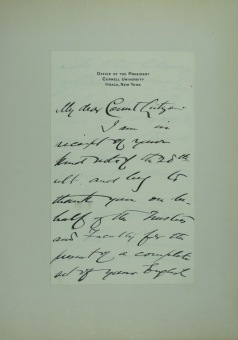 OFFICE OF THE PRESIDENT
CORNELL UNIVERSITY
ITHACA, NEW YORK
My dear Count Lützow
I am in
receipt of your
kind note of the 28th
ult. and beg to
thank you on be-
half of the Trustees
and Faculty for the
present of a complete
set of your English